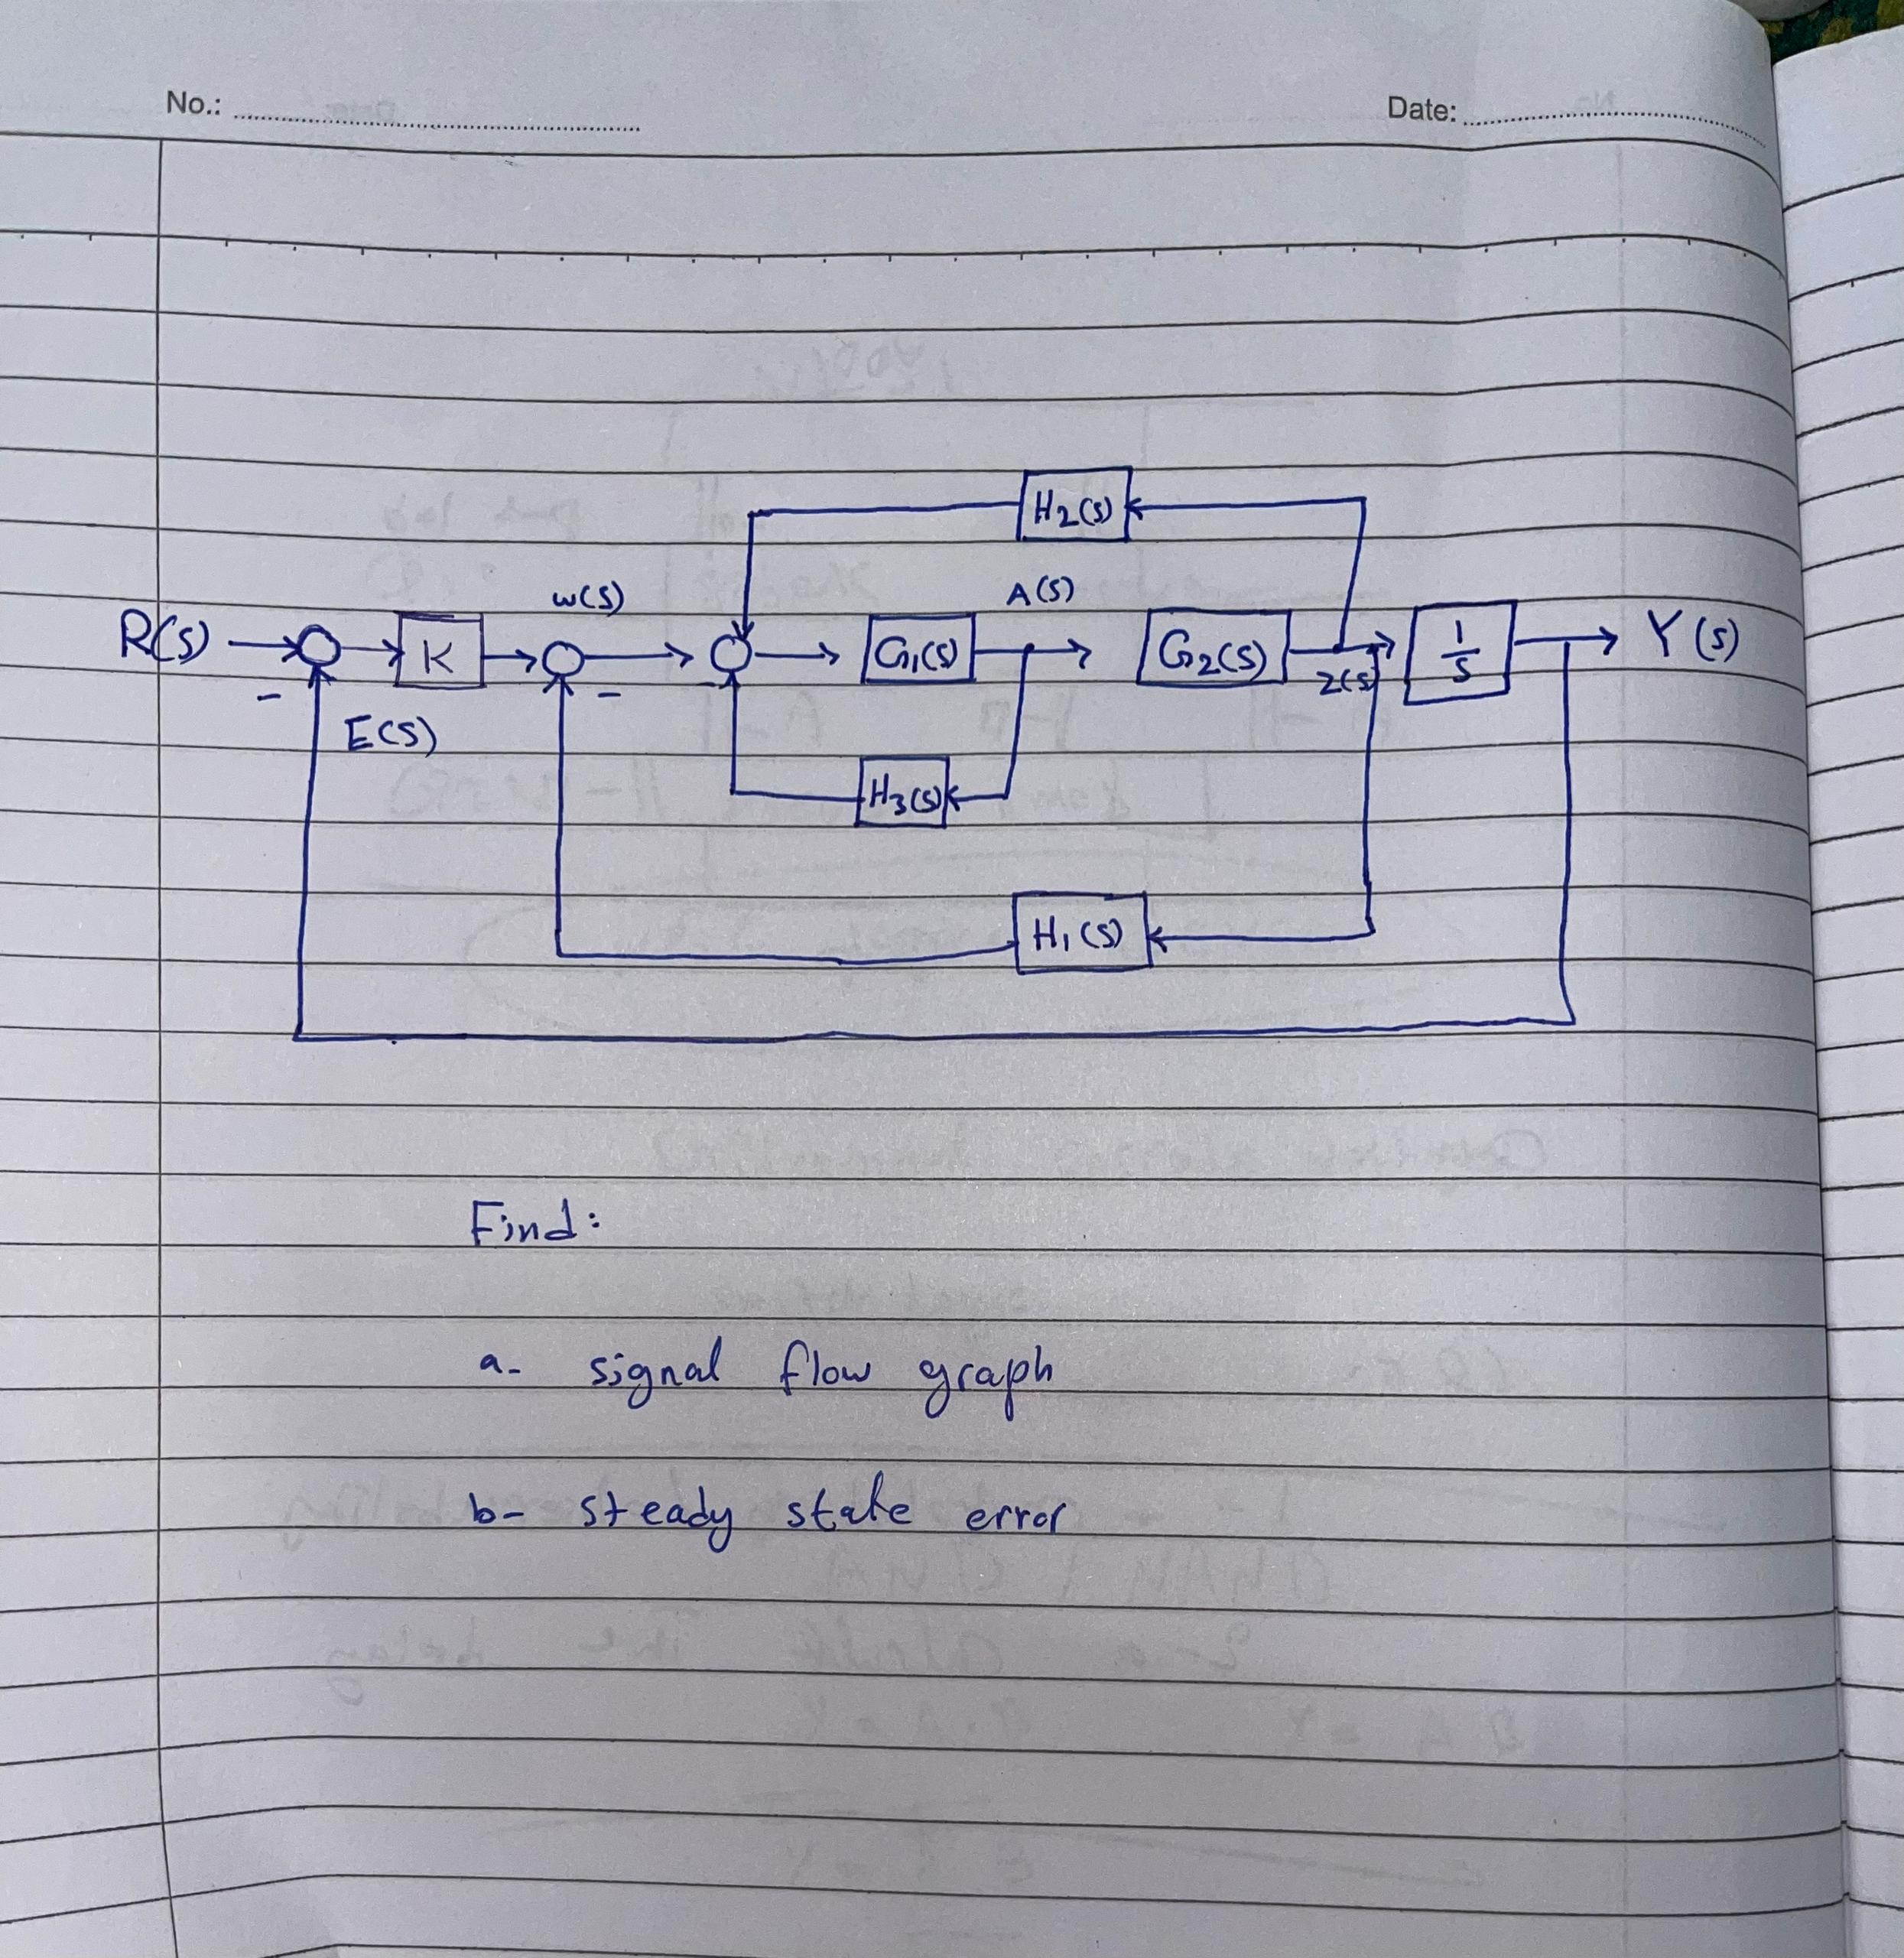 No.: Date:
H2(s)
w(s) A(s)
R(s) K G1(s) G2(s) 1/s Y(s)
- - - Z(s)
E(s)
H3(s)
H1(s)
Find:
a- signal flow graph
b- steady state error